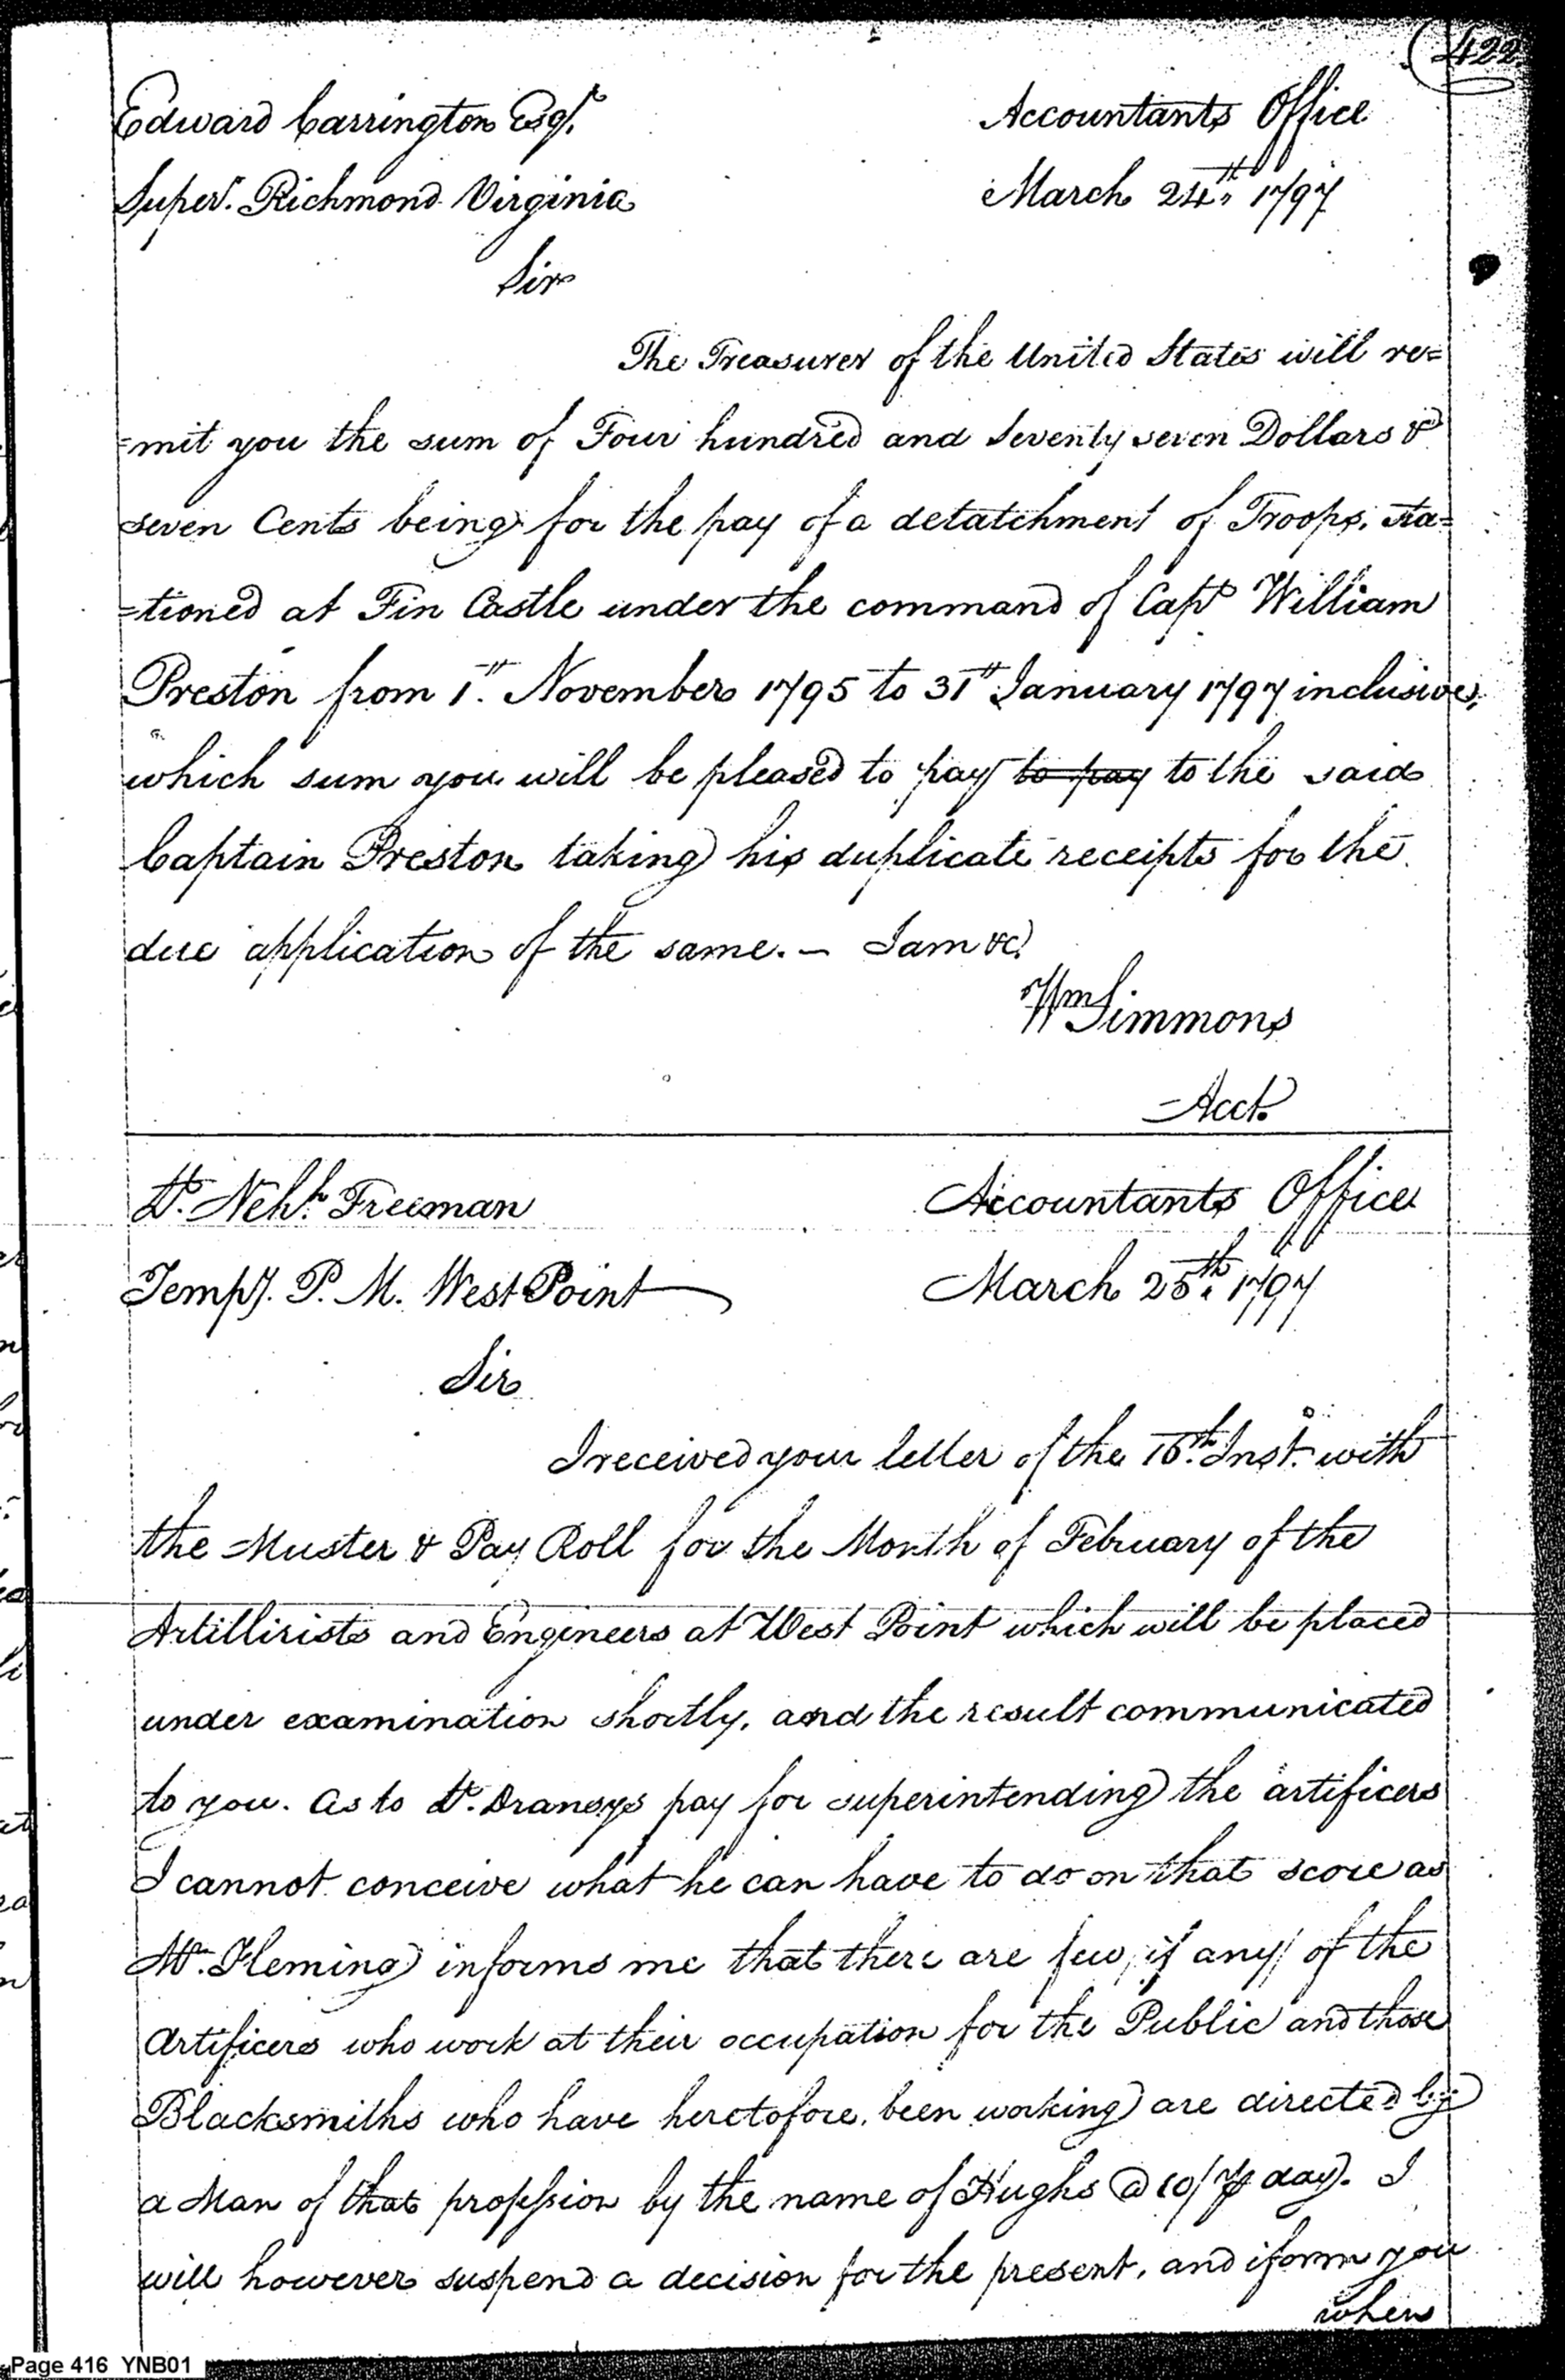 422
Edward Carrington Esqr.
Accountants Office
Superr. Richmond Virginia
March 24th. 1797
Sir
The Treasurer of the United States will re=
=mit you the sum of Four hundred and Seventy seven Dollars &
seven Cents being for the pay of a detatchment of Troops, sta=
=tioned at Fin Castle under the command of Capt William
Preston from 1st. November 1795 to 31st January 1797 inclusive,
which sum you will be pleased to pay to pay to the said
Captain Preston taking his duplicate receipts for the
due application of the same. — I am &c.
Wm Simmons
Acct.
Lt. Nehh. Freeman
Accountants Office
Tempy. P. M. West Point
March 25th. 1797
Sir
I received your letter of the 16th. Inst. with
the Muster & Pay Roll for the Month of February of the
Artillirists and Engineers at West Point which will be placed
under examination shortly, and the result communicated
to you. As to Lt. pay for superintending the artificers
I cannot conceive what he can have to do on that score as
Mr. Fleming informs me that there are few, if any, of the
Artificers who work at their occupation for the Public and those
Blacksmiths who have heretofore, been working are directed by
a Man of that profession by the name of Hughs @ 10/ ⅌ day. I
will however suspend a decision for the present, and iform you
when
Page 416 YNB01